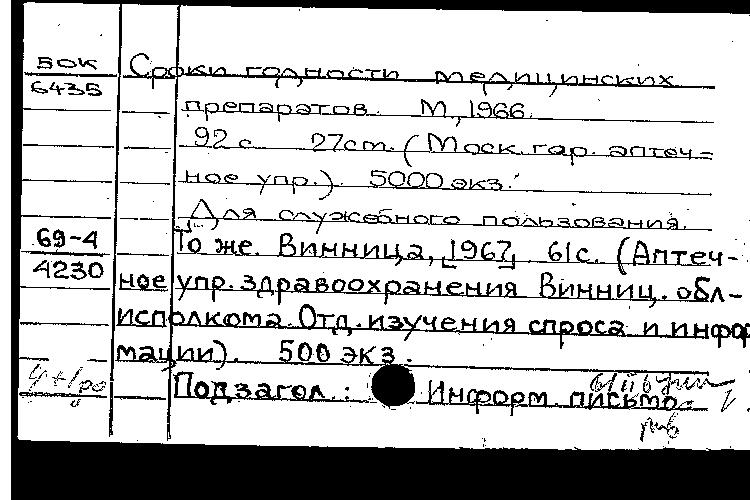 БОК Сроки годности медицинских
6435 препаратов. М., 1966.
92 с 27cm. (Моск. гор. аптеч=
ное упр.). 5000 экз.
Для служебного пользования.
69-4 То же. Винница, [1967]. 61 с. (Аптеч-
4230 ное упр. здравоохранения Винниц. обл-
исполкома. Отд. изучения спроса и инфор
мации). 500 экз.
Подзагол.: Информ. письмо